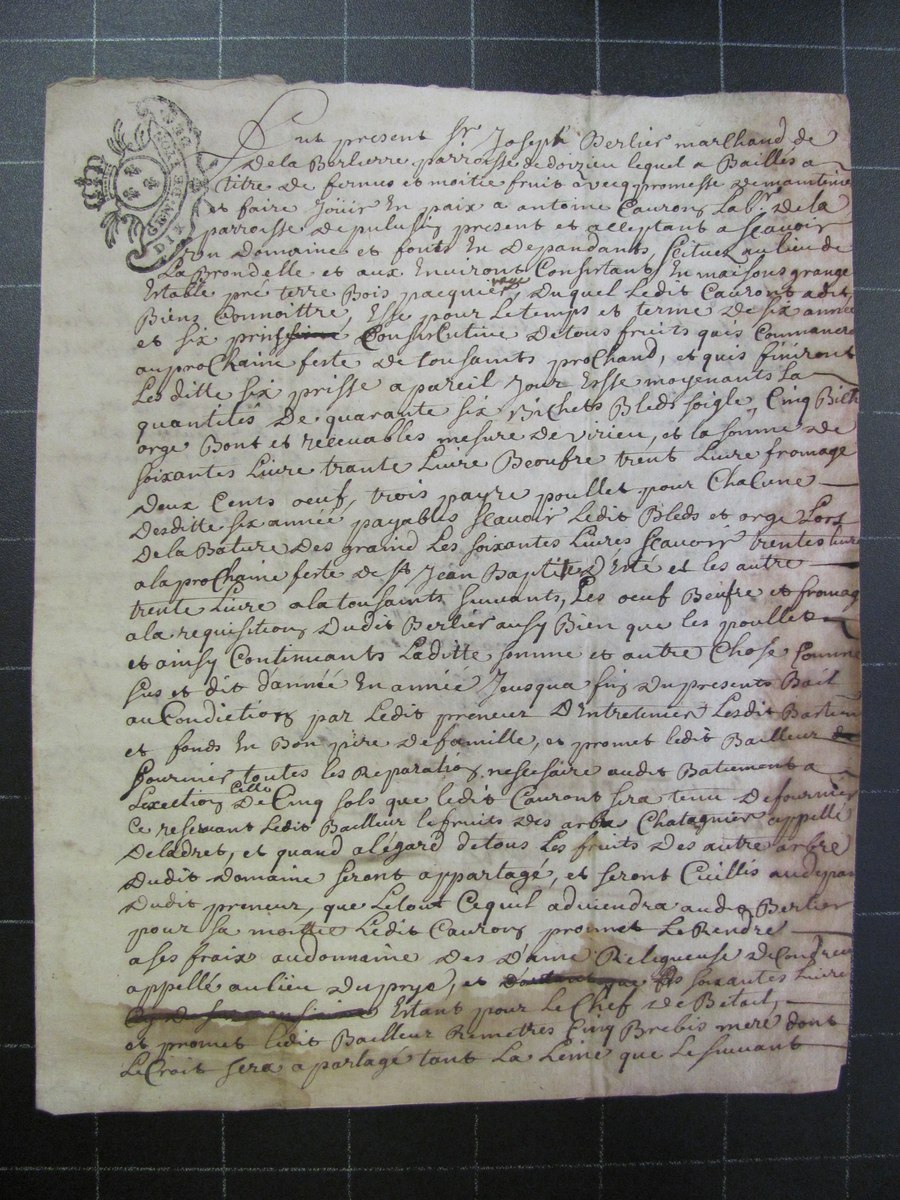 GEN. DE LION
DIX DE
Fut present Sr Joseph Berlier marchand de
De la Berlierre parroisse de doizieu lequel a Bailles a
titre de fermes et moitie fruit avecq promesse de maintenir
et faire Joüir En paix a antoine Cauron Labr. de la
parroisse de pelussin present et acceptant a scavoir
Domaine et fonts En Dependants scitues au lieu de
La Brondelle et aux Environt Consistant En maisons grange
Estable pré terre Bois pacquier Duquel ledit Cauront a dit
Bienz Connoittre, Esse pour le temps et terme de six année
et six Consecutive De tous fruits quis Commancera
au prochaine feste De tousaints prochand, et quis finiront
Les ditte six prisse a pareil Jour Esse moyenants La
quantités De quarante six Bichets Bleds soigle, Cinq Bich
orge Bont et recevables mesure de virieu, et la somme de
soixantes Livre trante Livre Beoufre trent Livre fromage
Deux Cents oeuf, trois payre poullet pour Chacune
Desditte six année payables scavoir Ledit Bleds et orge Lors
De la Bature Des graind Les soixantes Livres scavoir trentes livre
a la prochaine feste de St Jean Baptiste D'Eté et les autre
trente Livre a la tousaints suivants, Les oeuf Beufre et fromage
a la requisition Dudit Berlier ausy Bien que les poullet
et ainsy Continuants Laditte somme et autre Chose Comme
sus et dit d'année En année Jeusqua fin du presents Bail
au Condiction par Ledit preneur D'Entretenier Lesdit Bastim
et fonds En Bon pire de famille, et promet ledit Bailleur
fournier toutes les Reparation nescesaire audit Batiement a
Lexcetion Cille De Cinq sols que ledit Cauront sera tenu De fournier
Ce reservant Ledit Bailleur le fruits des arbre Chatagnier appellé
De ladret, et quand a légard de tous Les fruits Des autre arbre
Dudit Domaine seront appartagé, et seront Cuillis au depan
Dudit preneur, que Le tout Cequil adviendra audit Berlier
pour sa moittie Ledit Cauron promet Le Rendre
a ses fraix au domaine Des Dame Religueuse de Condrieu
appellé au lieu du , et soixantes livre
Estant pour Le Chef De Betail,
et promet ledit Bailleur Remettres Cinq Brebis mere dont
Le Croit sera a partage tant La Leine que Le suivant